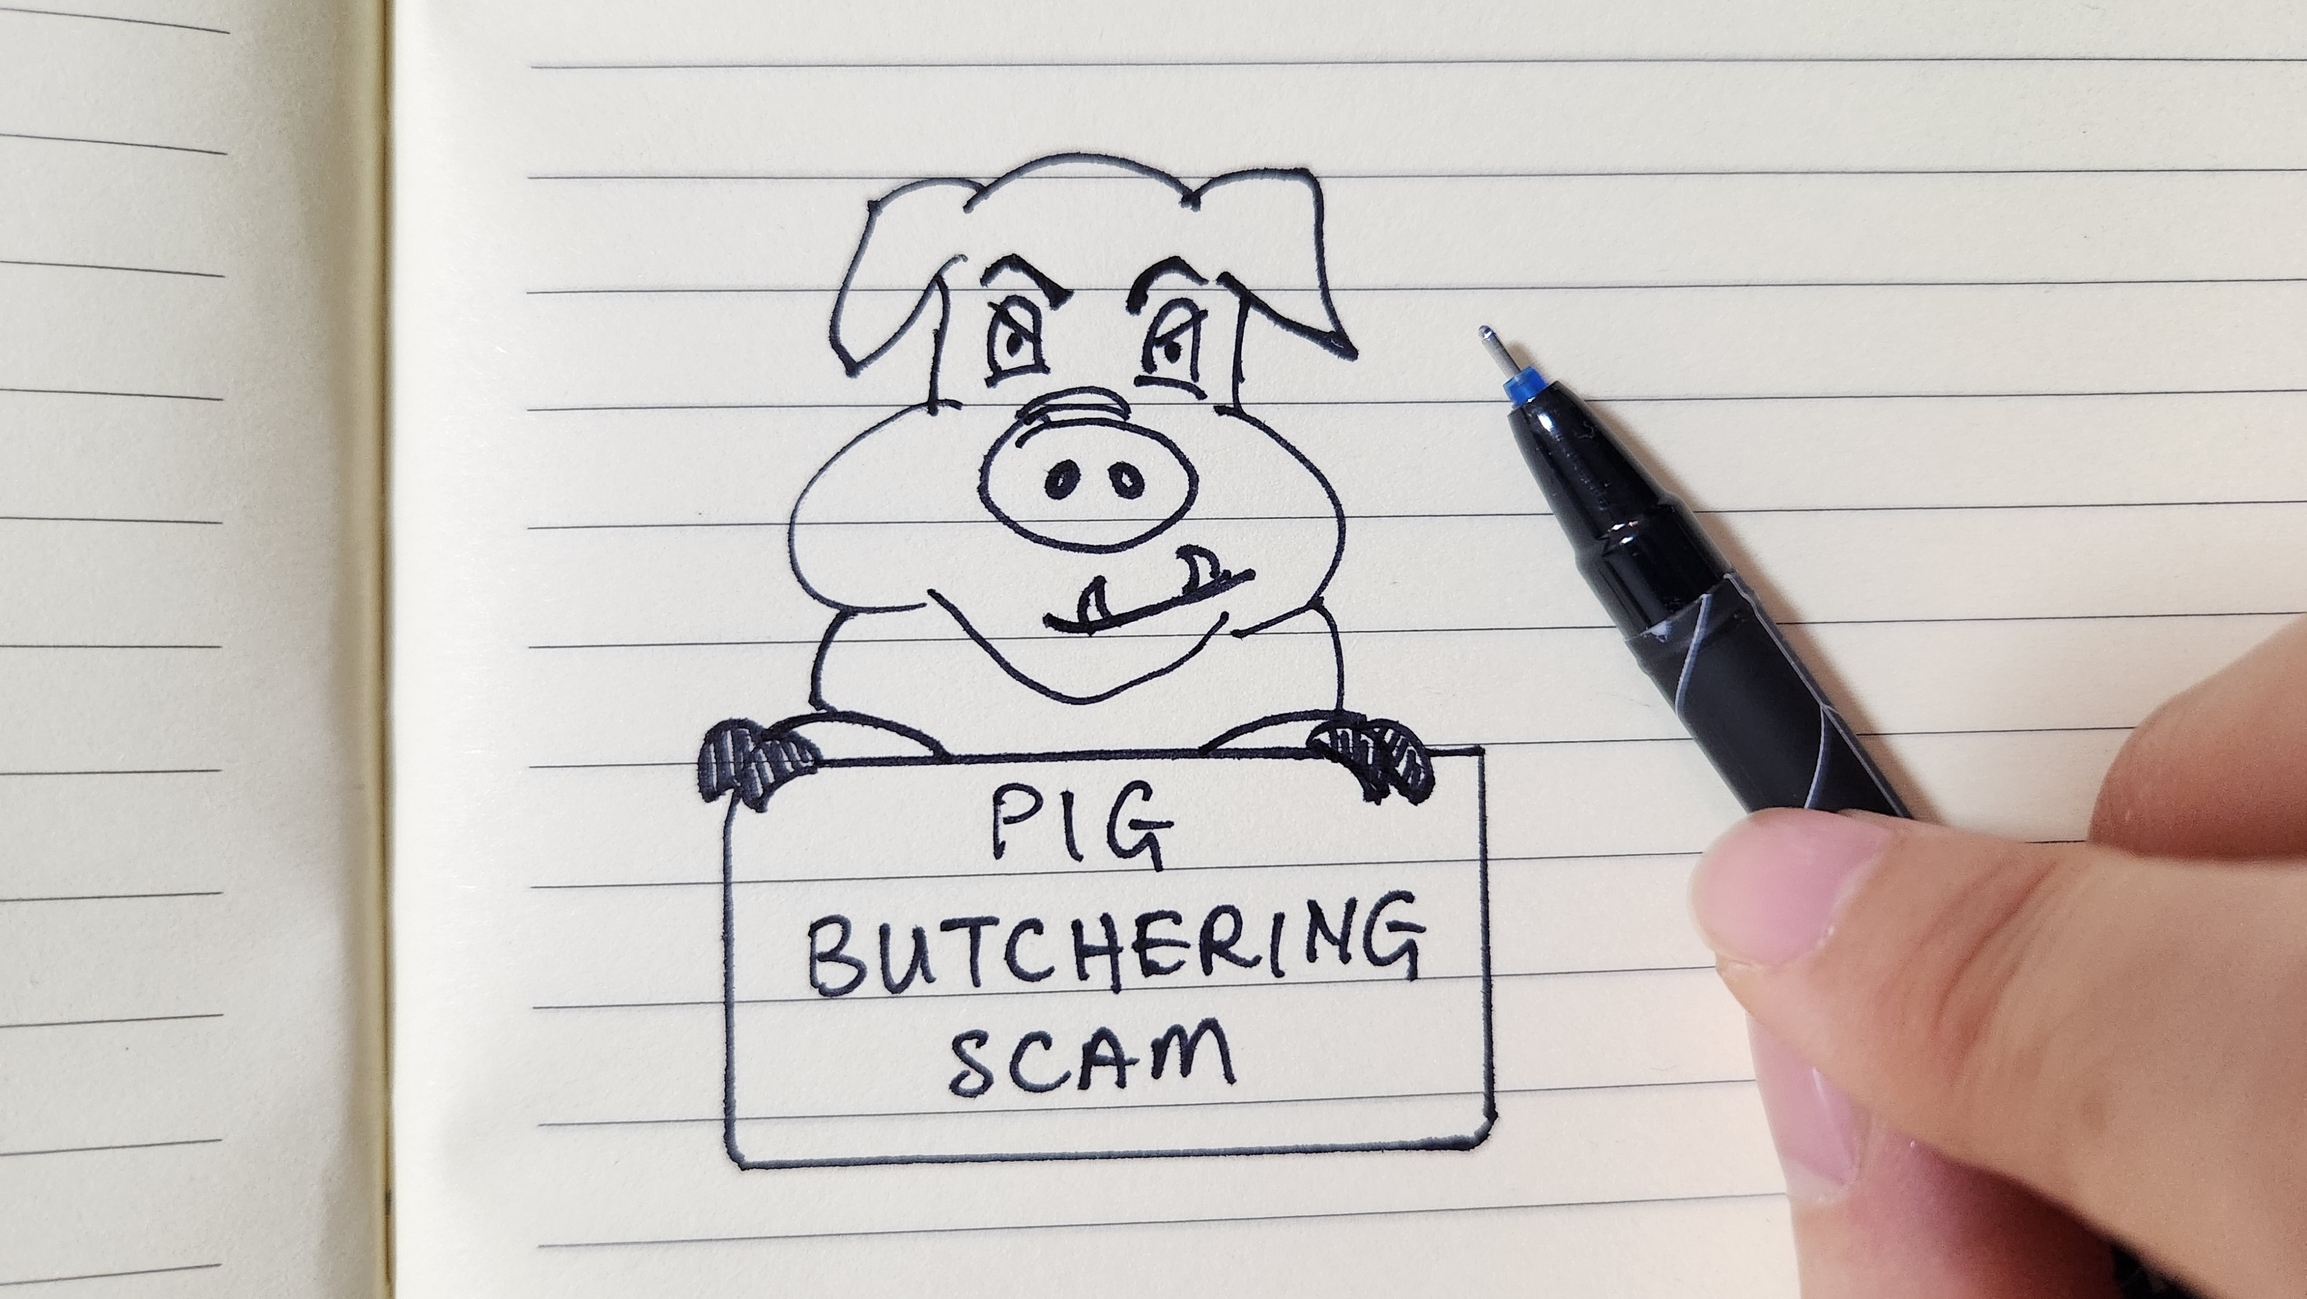 PIG
BUTCHERING
SCAM